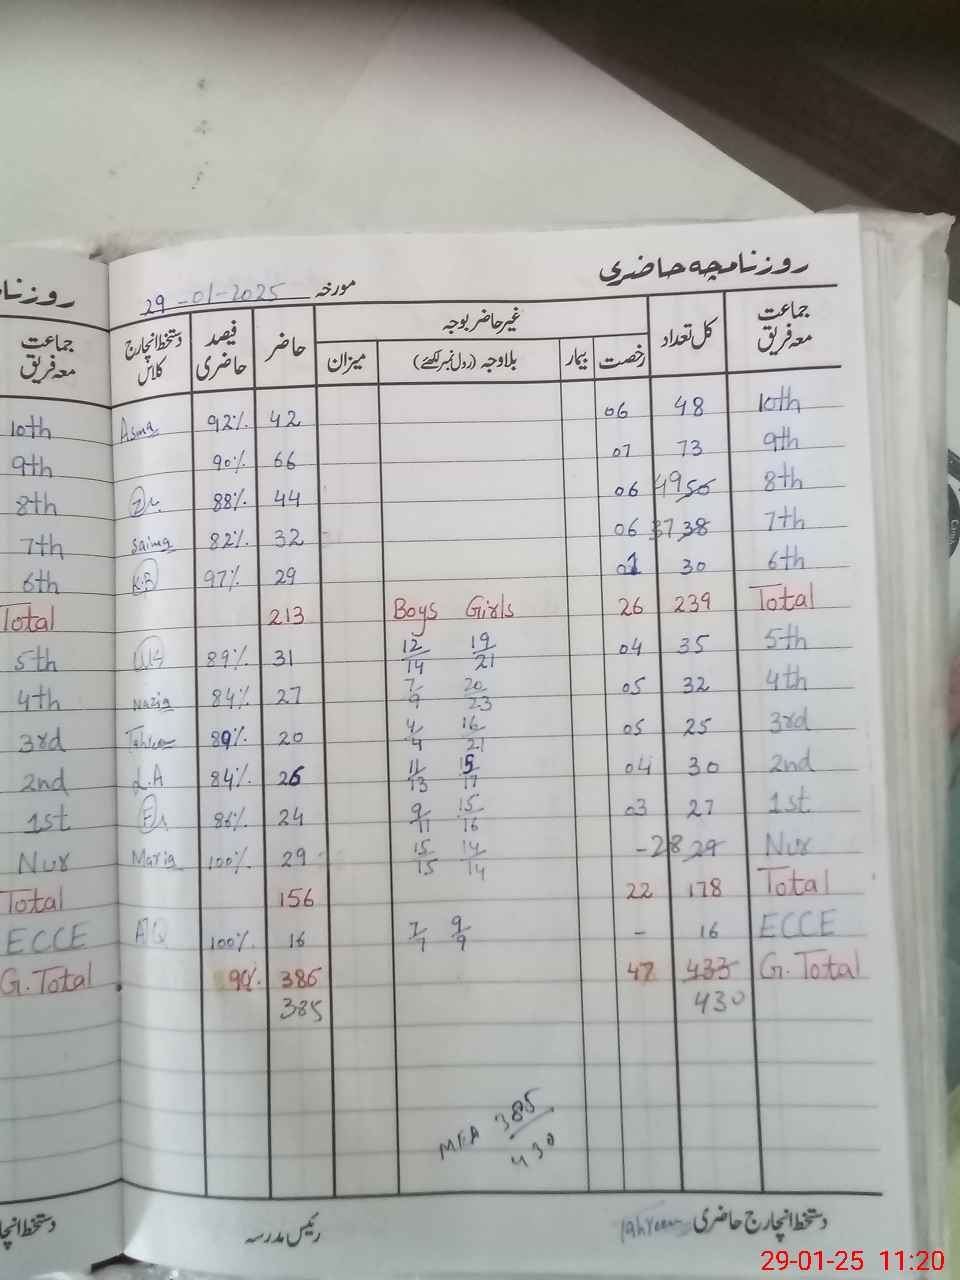 روزنامچہ حاضری
مورخہ 29-01-2025
جماعت معہ فریق کل تعداد غیر حاضر بوجہ حاضر فیصد حاضری دستخط انچارج کلاس
رخصت بیمار بلاوجہ (رول نمبر لکھئے) میزان
10th 48 06 42 92% Asma
9th 73 07 66 90%
8th 49 50 06 44 88%
7th 37 38 06 32 82% Saima
6th 30 01 29 97% K.B
Total 239 26 Boys Girls 213
5th 35 04 12/14 19/21 31 89%
4th 32 05 7/9 20/23 27 84% Nazia
3rd 25 05 4/4 16/21 20 89%
2nd 30 04 11/13 15/17 26 84% L.A
1st 27 03 9/11 15/16 24 86%
Nur 28 29 - 15/15 14/14 29 100% Maria
Total 178 22 156
ECCE 16 - 7/7 9/9 16 100%
G. Total 433 47 386 90%
430 385
MEA 385/430
دستخط انچارج حاضری Tahreem
رئیس مدرسہ
جماعت
معہ فریق
10th
9th
8th
7th
6th
Total
5th
4th
3rd
2nd
1st
Nur
Total
ECCE
G. Total
29-01-25 11:20